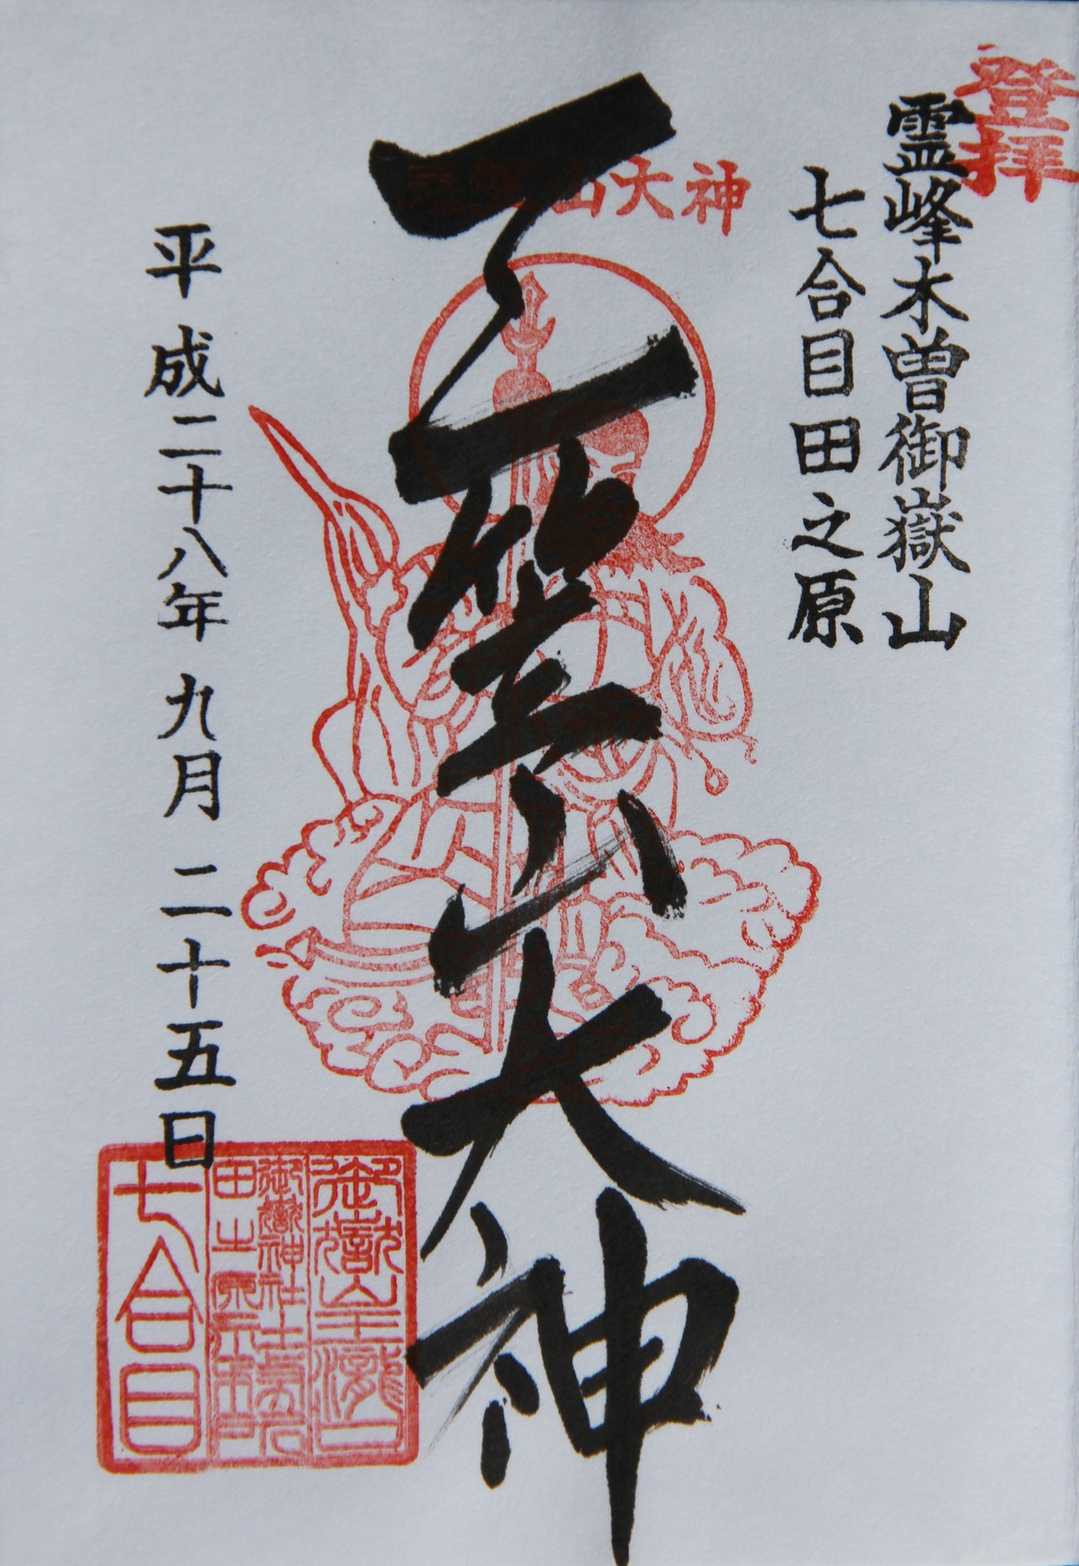 登拝
霊峰木曽御嶽山
七合目田之原
山大神
三笠山大神
平成二十八年九月二十五日
御嶽山王瀧口
御嶽神社
田之原
七合目